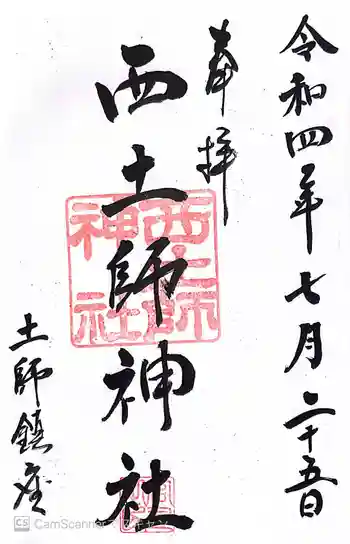 令和四年七月二十五日
奉拝
西土師神社
西土師
神社
土師鎮座
CS CamScannerでスキャン